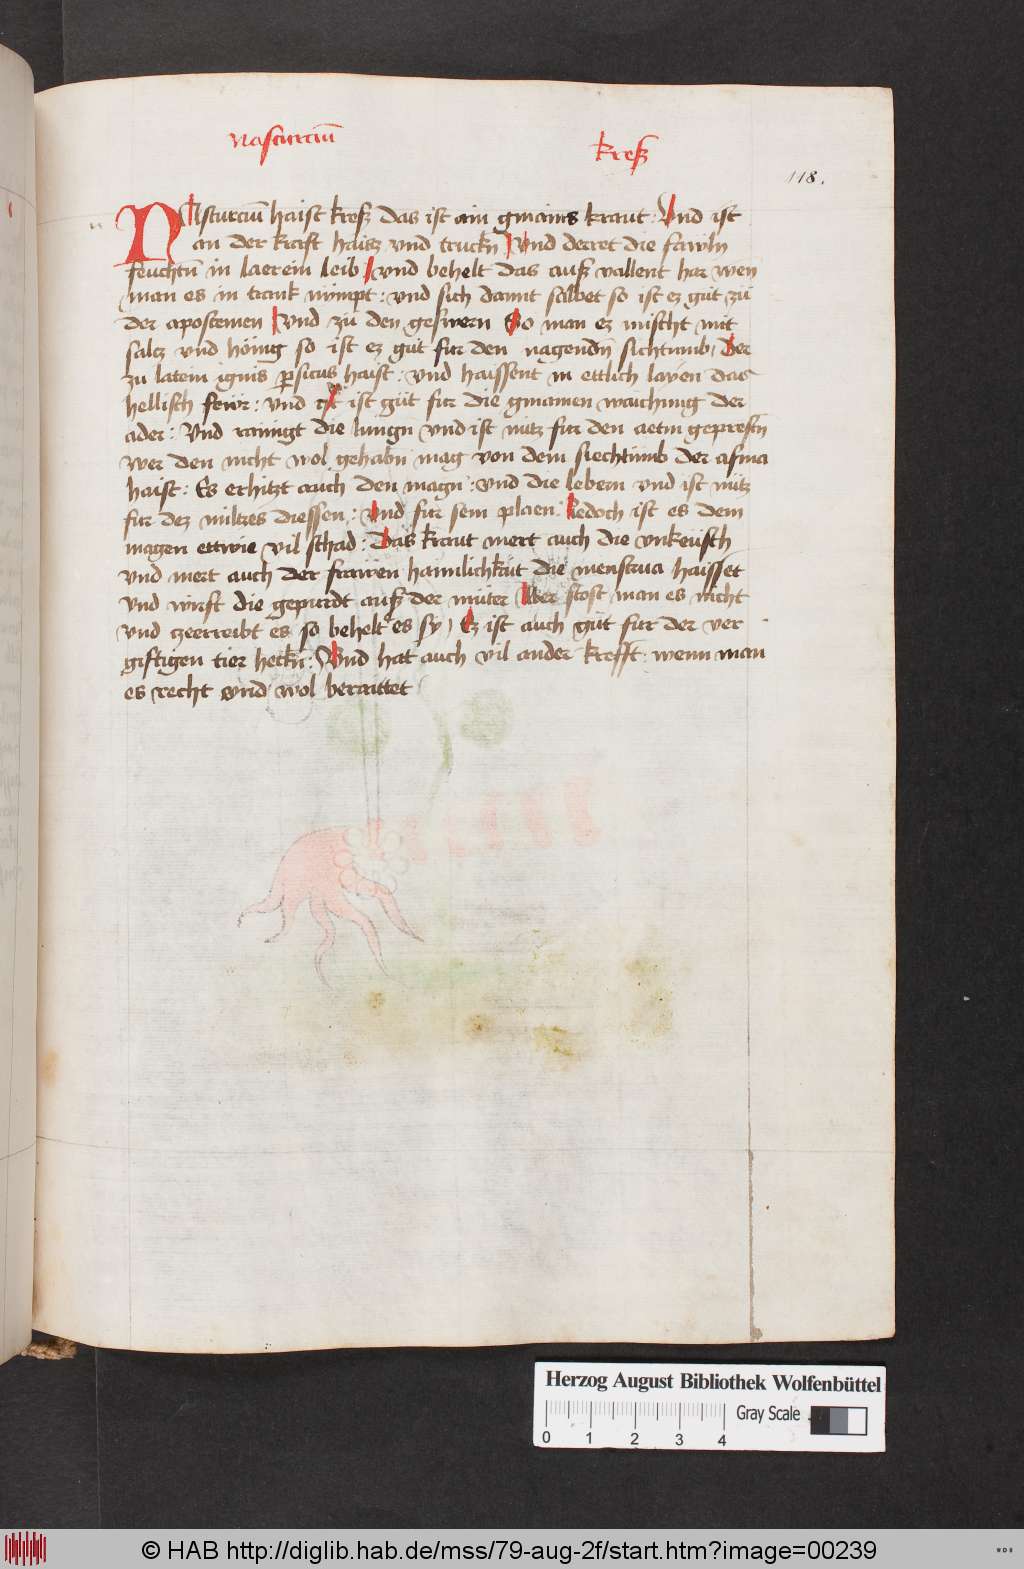 Nasturciū kreß
118.
NAsturciū haist kreß das ist ain gmains kraut : Vnd ist
an der kraft haisz vnd truckn Vnd derret die fawln
feuchtn̄ in laerem leib vnd behelt das auß vallent har wen
man es in trank nympt : vnd sich damit salbet so ist ez gůt zů
der apostemen Vnd zů den geswern So man ez mischt mit
salcz vnd hönig so ist ez gůt fur den nagendn̄ sichtumb Der
zu latein ignis p̱sicus haist : vnd haissent in ettlich layen das
hellisch fewr : vnd ist gůt fur die gmainen waichung der
ader : Vnd rainigt die lungn vnd ist nütz fur den aetm geprestn̄
wer den nicht wol gehabn̄ mag von dem siechtumb der asma
haist : Es erhitzt auch den magn̄ : vnd die lebern vnd ist nütz
fur dez miltzes diessen : Vnd fur sein plaen Iedoch ist es dem
magen ettwie vil schad : Das kraut mert auch die vnkeüsch
vnd mert auch der frawen haimlichkait die menstrua haisset
vnd wirft die gepurdt auß der můter Aber stost man es nicht
vnd czerreibt es so behelt es sy Ez ist auch gůt fur der ver
giftigen tier heckn̄ : Vnd hat auch vil ander krefft : wenn man
es recht vnd wol beraittet
Herzog August Bibliothek Wolfenbüttel
Gray Scale
0 1 2 3 4
© HAB http://diglib.hab.de/mss/79-aug-2f/start.htm?image=00239